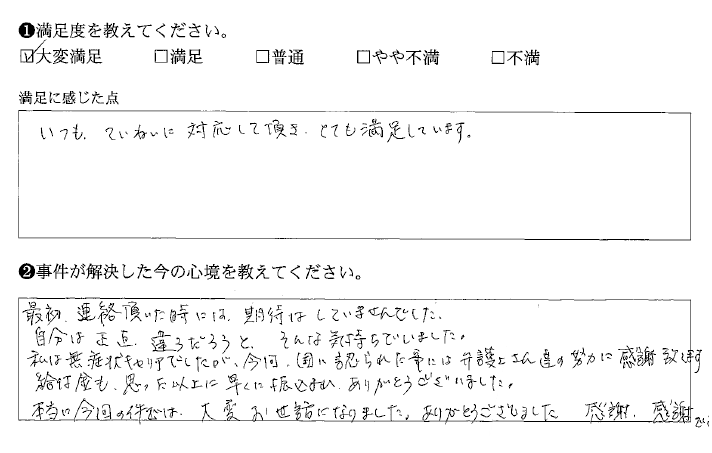 ❶満足度を教えてください。
☑大変満足 □満足 □普通 □やや不満 □不満
満足に感じた点
いつも、ていねいに対応して頂き、とても満足しています。
❷事件が解決した今の心境を教えてください。
最初、連絡頂いた時には、期待はしていませんでした。
自分は正直、違うだろうと、そんな気持ちでいました。
私は無症状キャリアでしたが、今回、国に認られた事には弁護士さん達の努力に感謝致します
給付金も、思った以上に早くに振込まれ、ありがとうございました。
本当に今回の件では、大変お世話になりました。ありがとうございました 感謝、感謝です